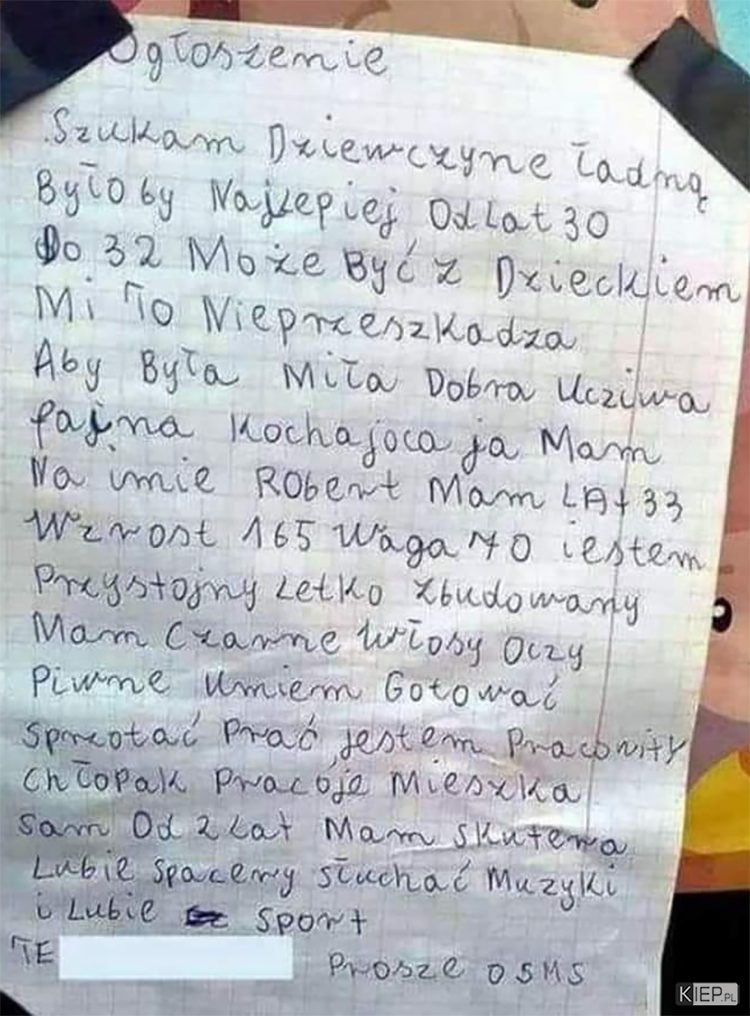 Ogłoszenie
Szukam Dziewczyne Ładną
Było by Najlepiej Od Lat 30
Do 32 Może Być z Dzieckiem
Mi To Nieprzeszkadza
Aby Była Miła Dobra Ucziwa
fajna Kochajoca ja Mam
Na imie Robert Mam LAt 33
Wzrost 165 Waga 70 iestem
Przystojny Letko Zbudowany
Mam Czarne Włosy Oczy
Piwne Umiem Gotować
Sprzotać Prać jestem Pracowity
Chłopak Pracóje Mieszka
Sam Od 2 Lat Mam Skutera
Lubie Spacery Słuchać Muzyki
i Lubie Sport
TE
Prosze O SMS
KIEP.PL